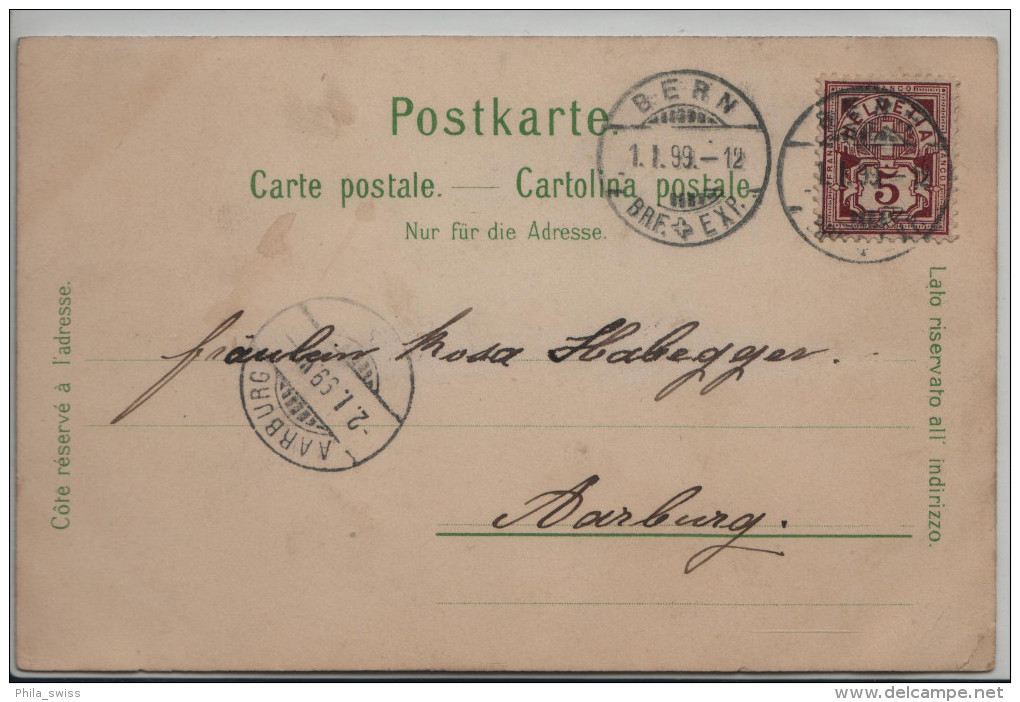 Postkarte.
Carte postale. — Cartolina postale.
Nur für die Adresse.
BERN
1.I.99.-12
BRF. EXP.
FRANCO
HELVETIA
5
1.I.99.-12
Côte réservé à l'adresse.
Lato riservato all' indirizzo.
AARBURG
-2.I.99.
fräulein Rosa Habegger.
Aarburg.
Phila_swiss
www.delcampe.net